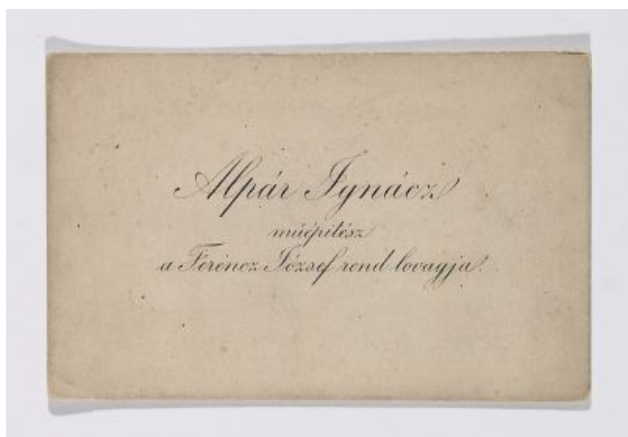 Alpár Ignácz
műépitész
a Ferencz József rend lovagja.